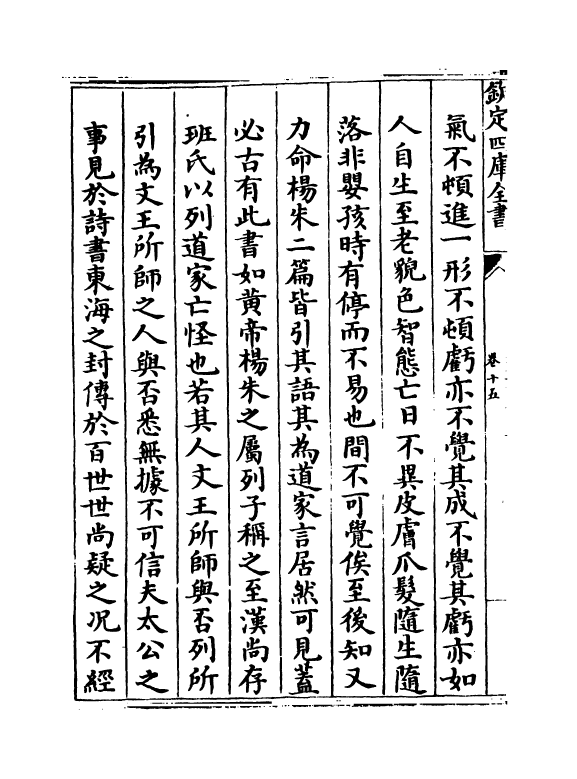 欽定四庫全書
卷十五
氣不頓進一形不頓虧亦不覺其成不覺其虧亦如
人自生至老貌色智態亡日不異皮膚爪髮隨生隨
落非嬰孩時有停而不易也間不可覺俟至後知又
力命楊朱二篇皆引其語其為道家言居然可見蓋
必古有此書如黃帝楊朱之屬列子稱之至漢尚存
班氏以列道家亡怪也若其人文王所師與否列所
引為文王所師之人與否悉無據不可信夫太公之
事見於詩書東海之封傳於百世世尚疑之況不經